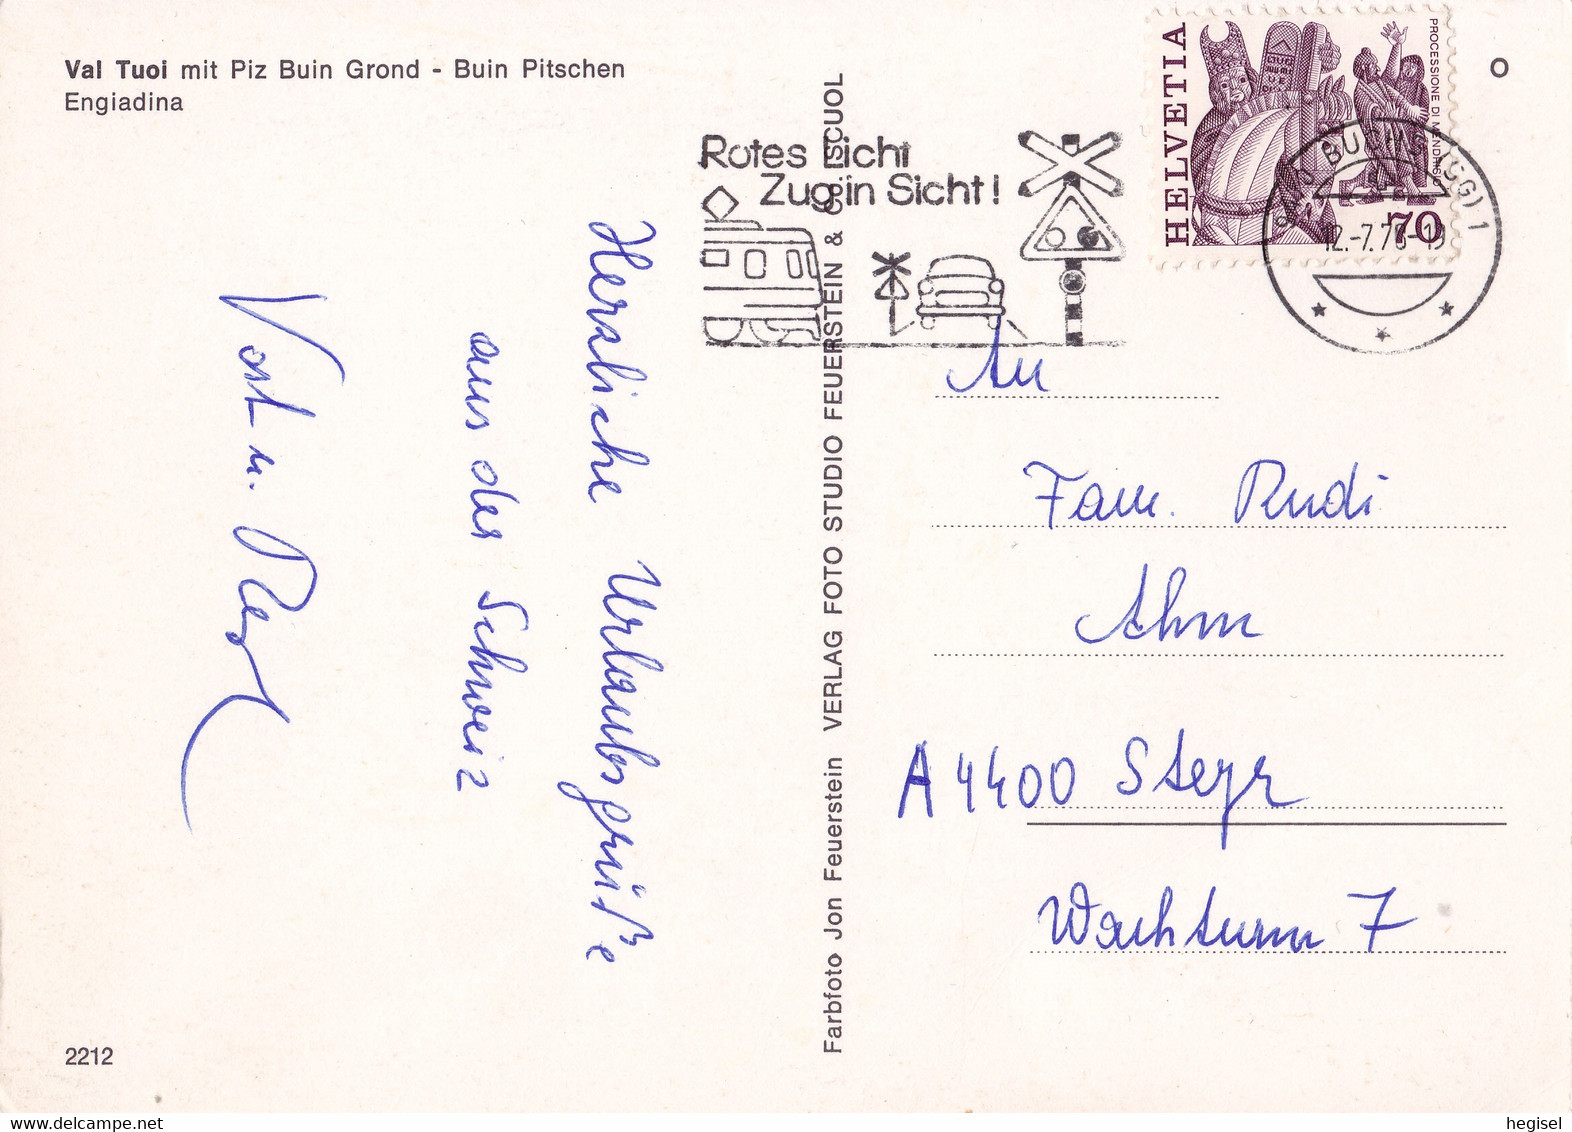 Val Tuoi mit Piz Buin Grond - Buin Pitschen
Engiadina
Rotes Licht
Zug in Sicht!
HELVETIA
PROCESSIONE DI MENDRISIO
70
BUCHS (SG) 1
12.-7.7
O
Herzliche Urlaubsgrüße
aus der Schweiz
u.
Farbfoto Jon Feuerstein VERLAG FOTO STUDIO FEUERSTEIN & CO SCUOL
An
Fam. Rudi
Ahm
A 4400 Steyr
Wachturm 7
2212
hegisel